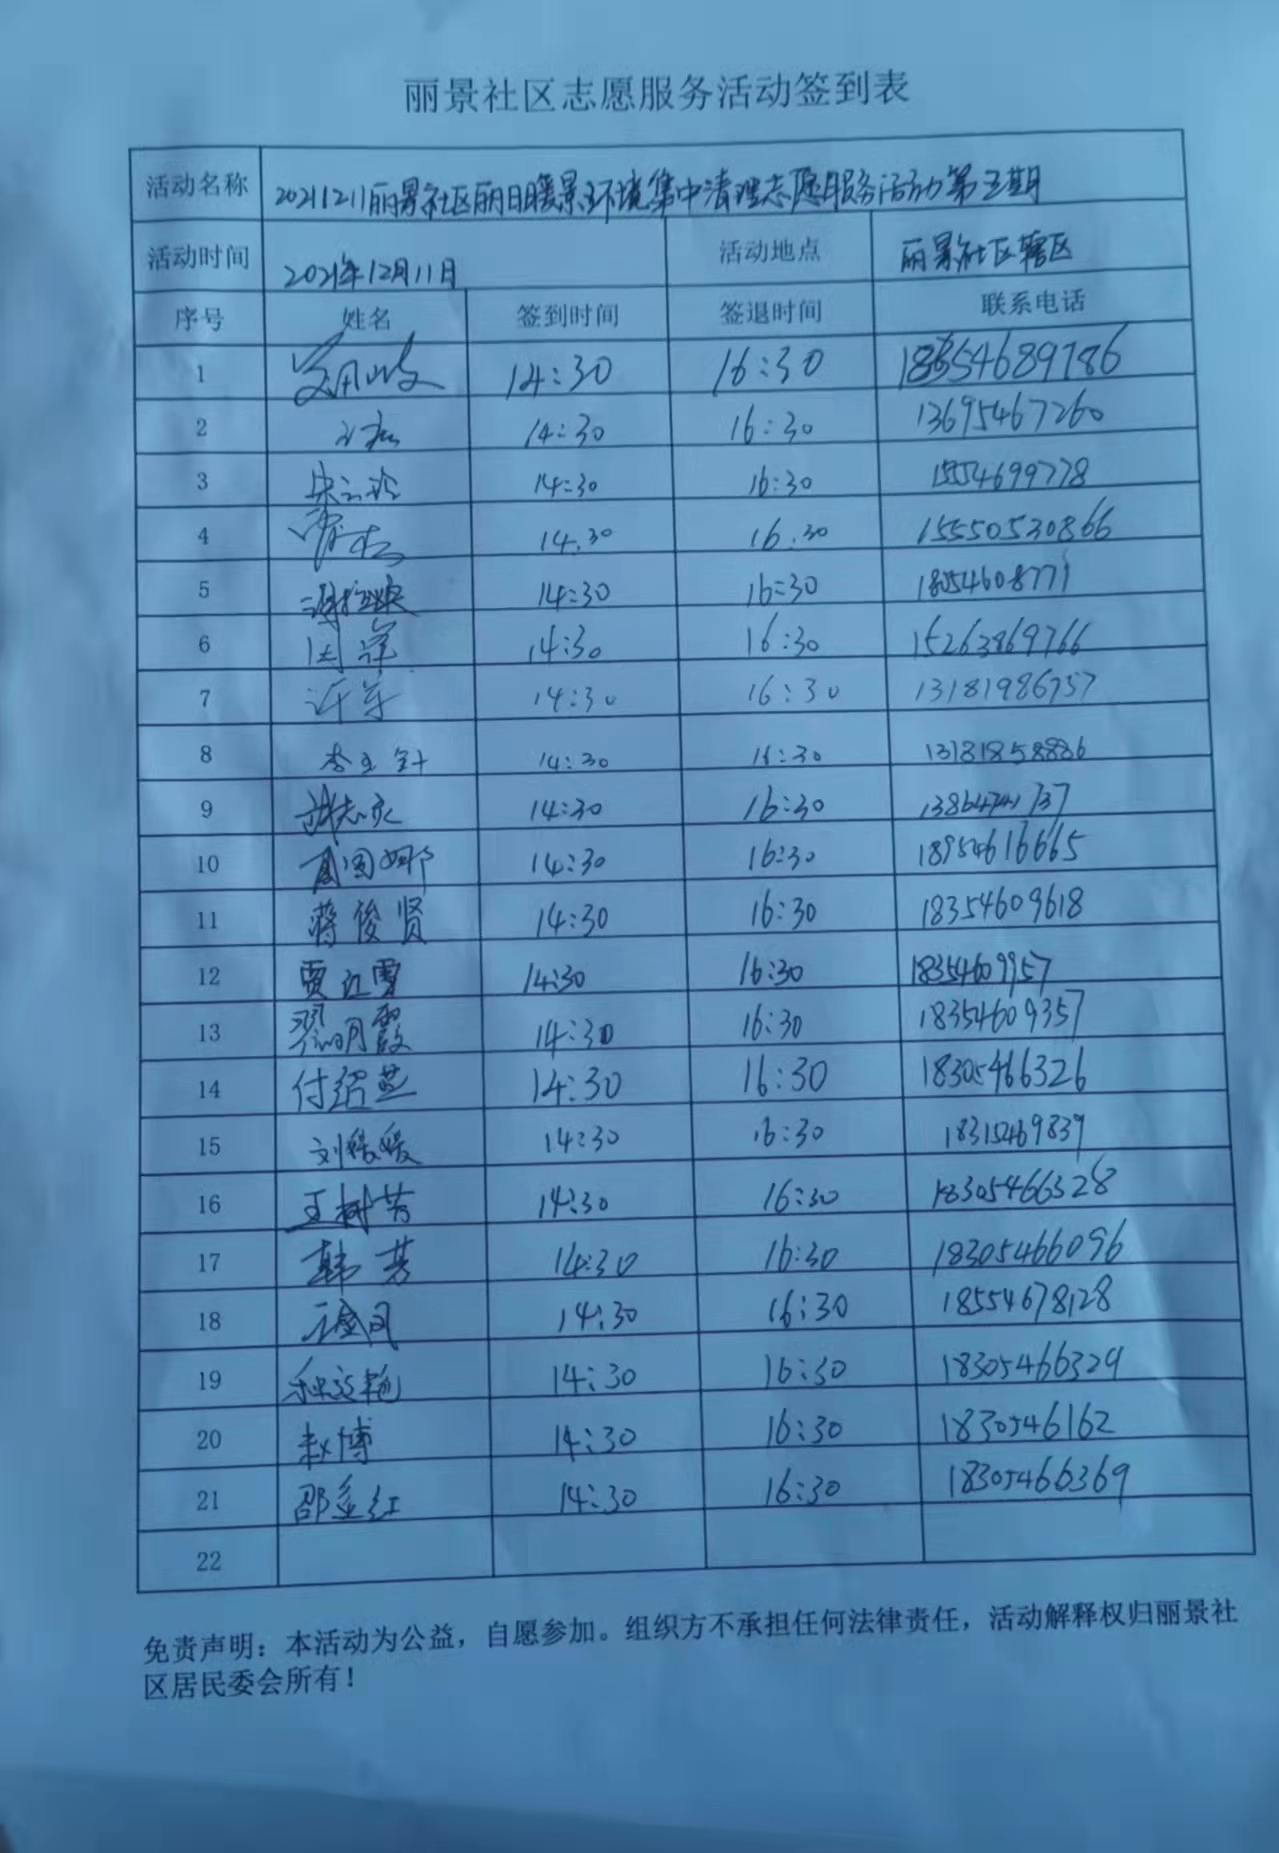 丽景社区志愿服务活动签到表
活动名称 20211211丽景社区丽日暖景环境集中清理志愿服务活动第五期
活动时间 2021年12月11日 活动地点 丽景社区辖区
序号 姓名 签到时间 签退时间 联系电话
1 14:30 16:30
2 14:30 16:30 13695467260
3 14:30 16:30 15554699778
4 14:30 16:30 15550530866
5 14:30 16:30 18054608771
6 周萍 14:30 16:30 15263869766
7 许军 14:30 16:30 13181986757
8 14:30 16:30 13181858886
9 14:30 16:30
10 14:30 16:30 18954616665
11 蒋俊贤 14:30 16:30 18354609618
12 贾红雪 14:30 16:30 18354609957
13 綦明霞 14:30 16:30 18354609357
14 付绍燕 14:30 16:30 18305466326
15 刘媛媛 14:30 16:30 18315469839
16 王树芳 14:30 16:30 18305466328
17 韩芳 14:30 16:30 18305466096
18 14:30 16:30 18554678128
19 14:30 16:30 18305466329
20 赵博 14:30 16:30 1830546162
21 邵益红 14:30 16:30 18305466369
22
免责声明：本活动为公益，自愿参加。组织方不承担任何法律责任，活动解释权归丽景社
区居民委会所有！